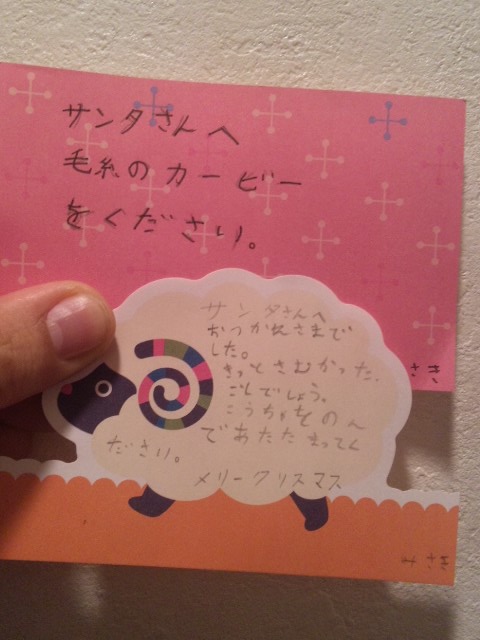 サンタさんへ
毛糸のカービー
をください。
サンタさんへ
おつかれさまで
した。
きっとさむかった
でしょう。
こうちゃをのん
であたたまってく
ださい。
メリークリスマス